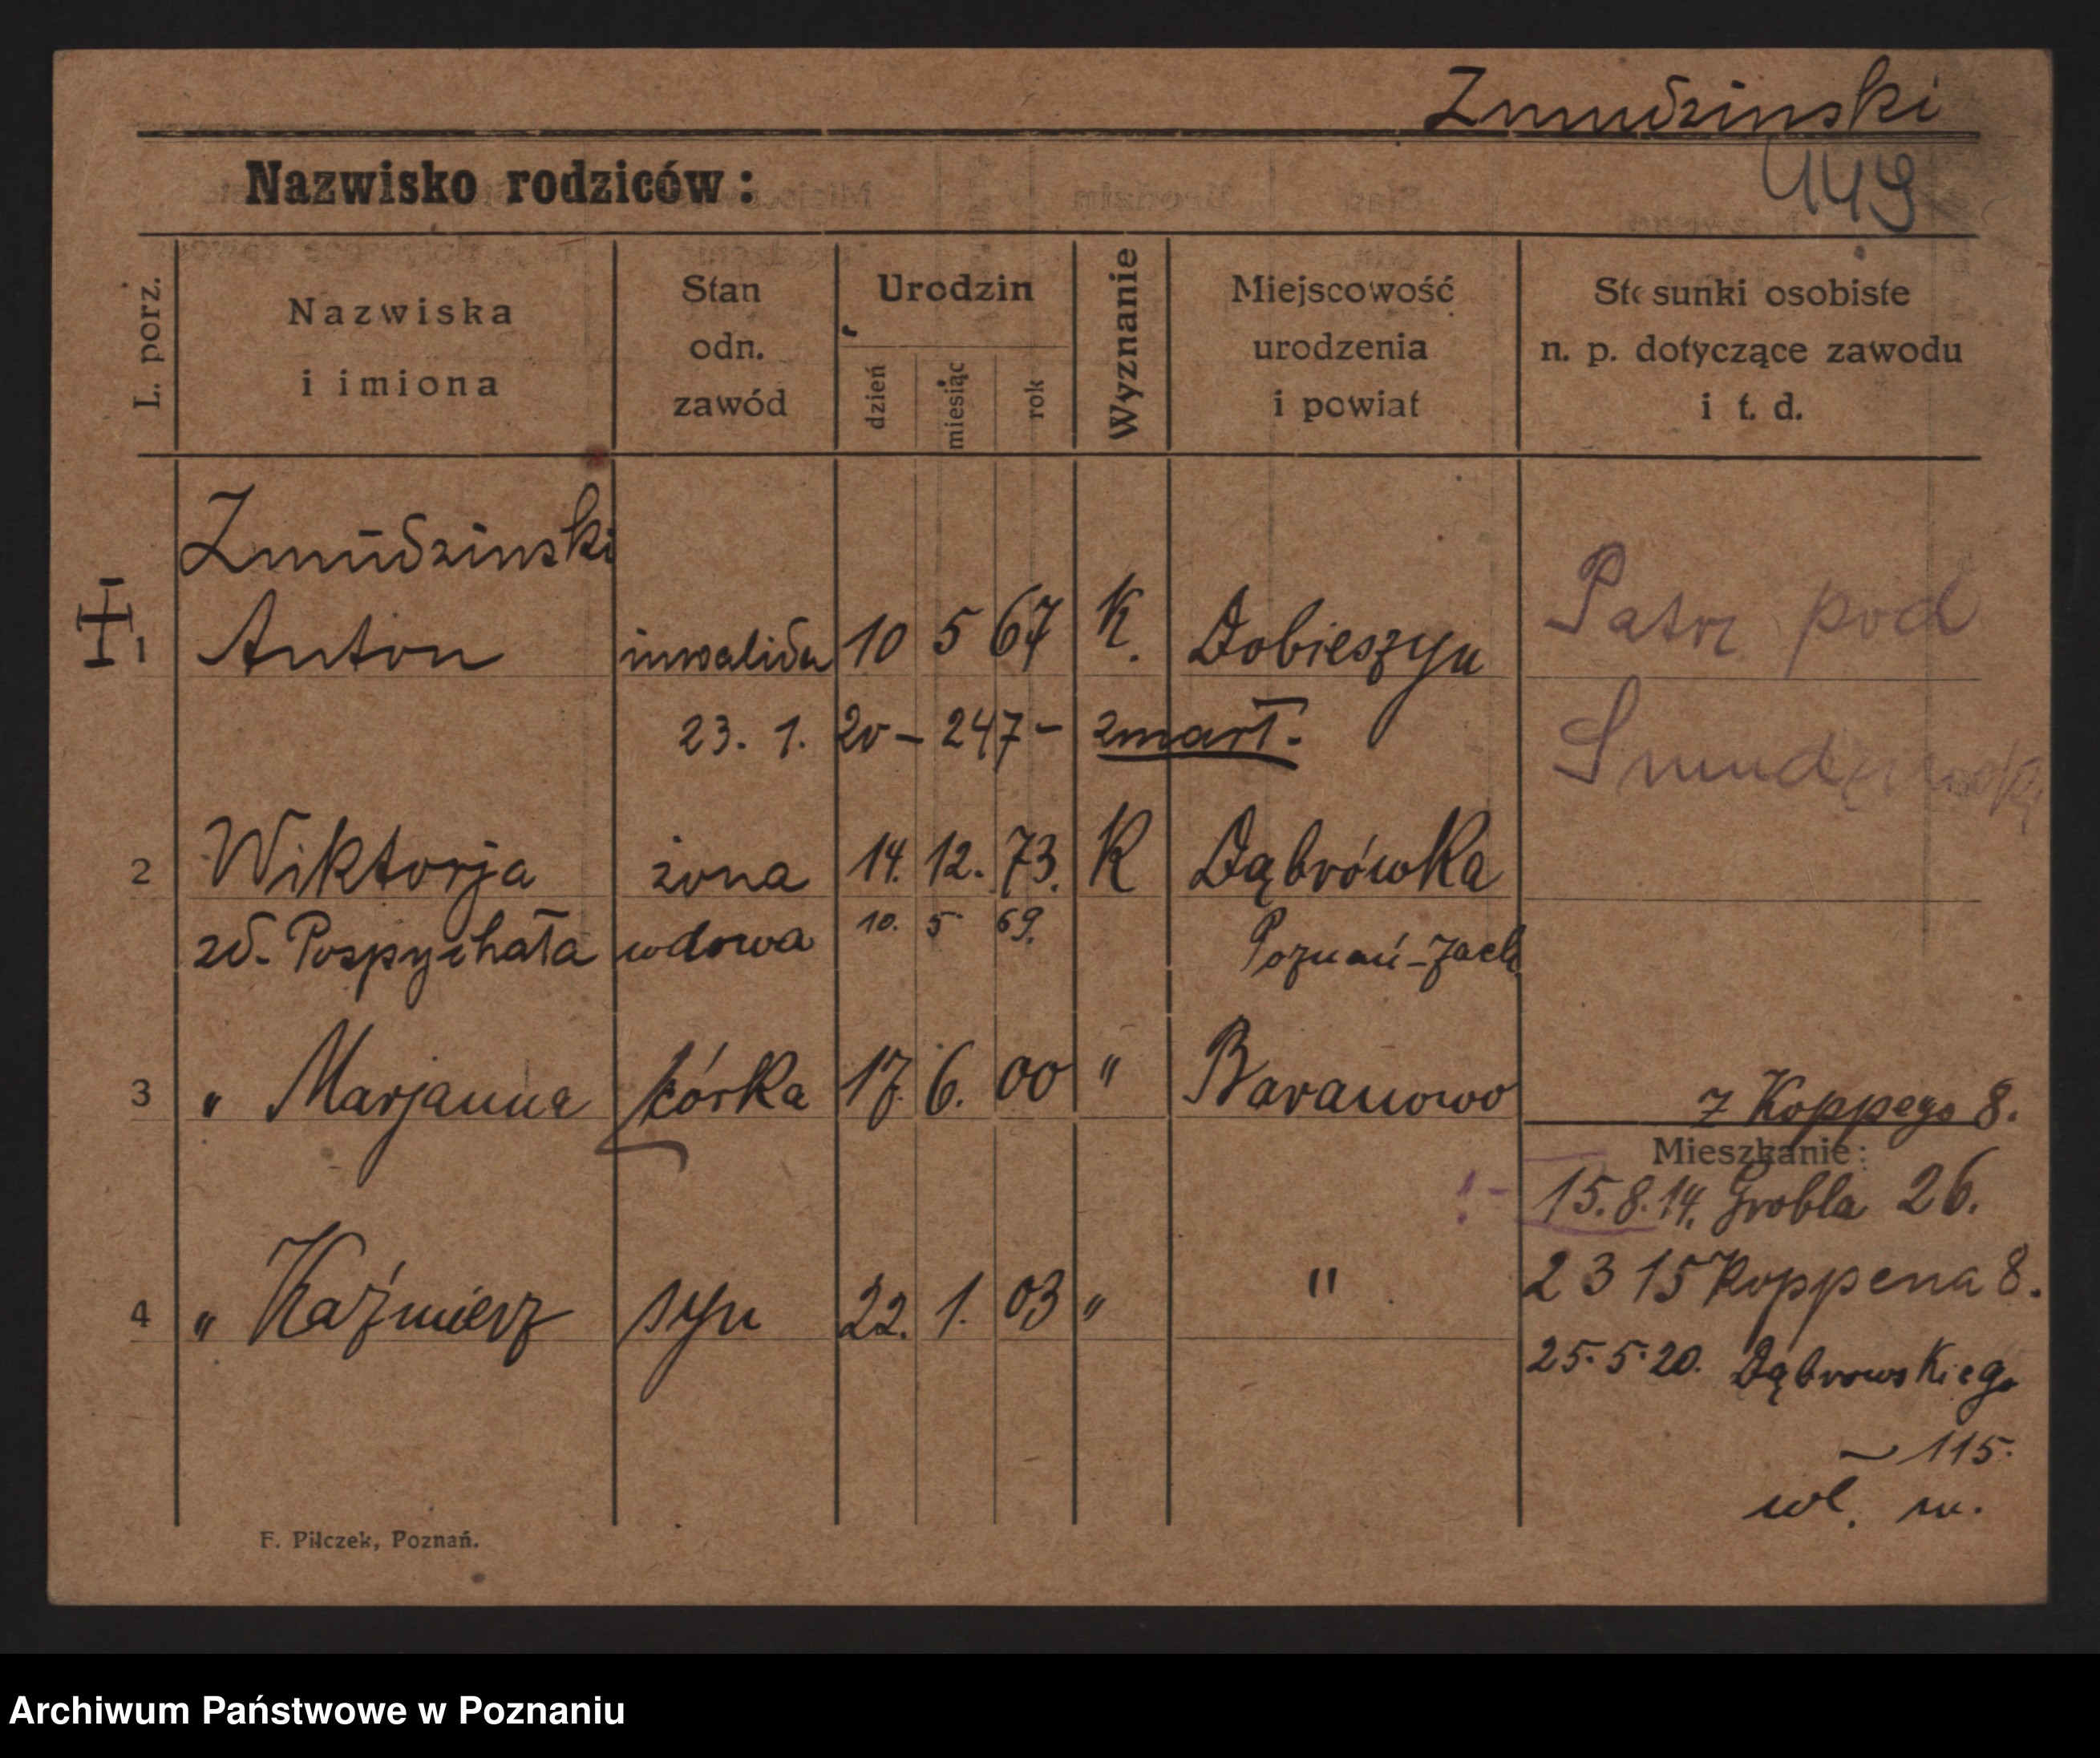 Zmudzinski
Nazwisko rodziców:
449
L. porz.
Nazwiska
i imiona
Stan
odn.
zawód
Urodzin
dzień
miesiąc
rok
Wyznanie
Miejscowość
urodzenia
i powiat
Stosunki osobiste
n. p. dotyczące zawodu
i t. d.
Zmudzinski
1 Anton inwalida 10 5 67 K. Dobieszyn
Patrz pod
23. 1. 20 – 247 – zmarł.
Smudziński
2 Wiktorja żona 14. 12. 73. K Dąbrówka
zd. Pospychała wdowa 10. 5 69. Poznań-Zach
3 " Marjanna córka 17. 6. 00 " Baranowo
z Koppego 8.
Mieszkanie:
15.8.14. Grobla 26.
4 " Kaźmierz syn 22. 1. 03 " "
2 3 15 Koppena 8.
25. 5. 20. Dąbrowskiego
– 115.
wł. m.
F. Piłczek, Poznań.
Archiwum Państwowe w Poznaniu